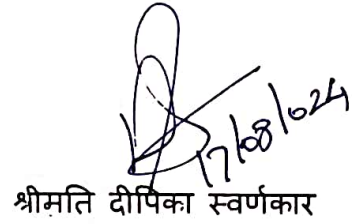 17/08/024
श्रीमति दीपिका स्वर्णकार